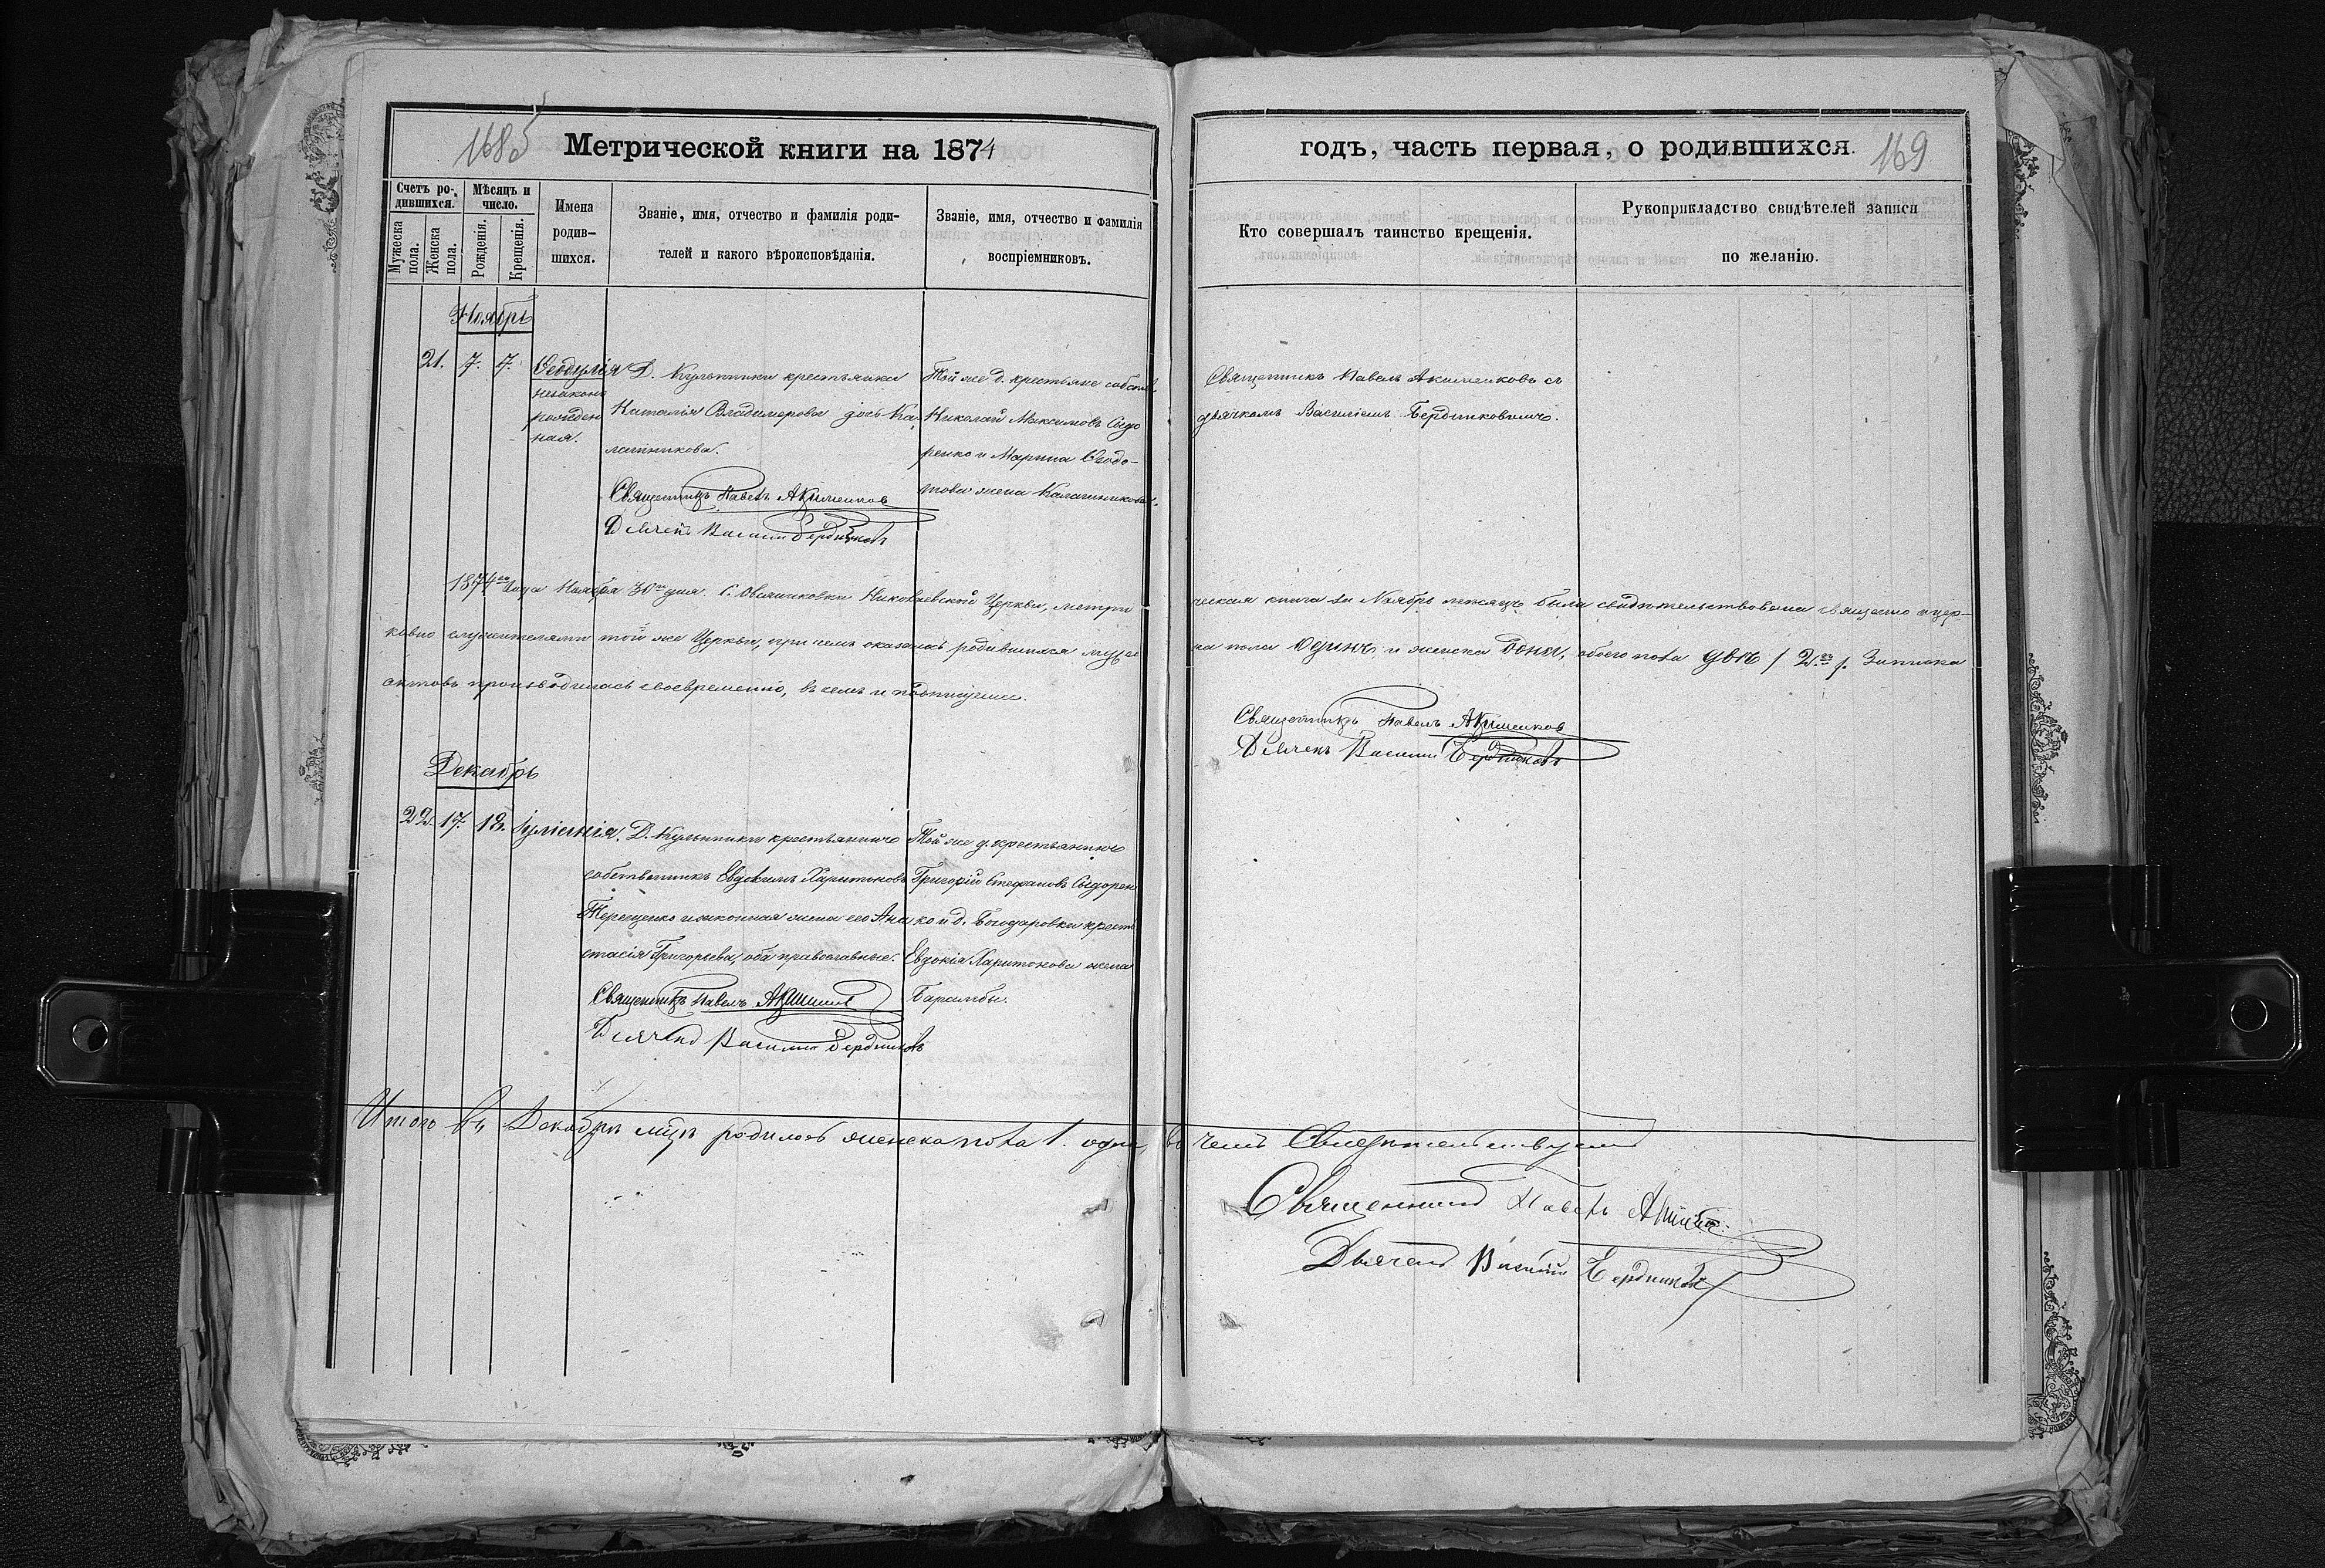 168об
Метрической книги на 1874
годъ, часть первая, о родившихся.
169
Счетъ родившихся.
Мужеска пола.
Женска пола.
Мѣсяцъ и число.
Рожденія.
Крещенія.
Имена родившихся.
Званіе, имя, отчество и фамилія родителей и какого вѣроисповѣданія.
Званіе, имя, отчество и фамилія воспріемниковъ.
Кто совершалъ таинство крещенія.
Рукоприкладство свидѣтелей записи по желанію.
Ноябрь
21. 7. 7.
Ѳеодулія
незакон
рожден
ная.
Д. крестьянка
Наталія Владимерова дочь Ка-
лашникова.
Священникъ Павелъ Акименков
Дьячекъ Василий Бердников
Той же д. крестьяне собств.
Николай Максимовъ Сидо
ренко и Марина Ѳеодо-
това жена Калашникова.
Священникъ Павелъ Акименковъ съ
дьячкомъ Василіемъ Бердниковимъ.
1874го Года Ноября 30го дня. С. Николаевской Церкви, метри
ческая книга за Ноябрь мѣсяцъ была свидѣтельствована священно и цер-
ковно служителями той же Церкви, при чемъ оказалось родившихся муже
ска пола Одинъ и женска Одна, обоего пола двѣ / 2. /. Записка
актовъ производилась своевременно, въ чемъ и подписуемся.
Священникъ Павелъ Акименков
Дьячекъ Василий Бердниковъ
Декабрь
22. 17. 18. Іуліанія.
Д. крестьянинъ
собственникъ Евдокимъ Харитоновъ
Терещенко и законная жена его Ана
стасія Григорьева, оба православные.
Священникъ Павелъ
Дьячекъ Василий Бердниковъ
Той же д. крестьянинъ
Григорій Стефановъ Сидорен
ко и д. крест.
Евдокія Харитонова жена
Итого въ Декабрѣ м-цѣ родилось женска пола 1. одна, въ чемъ Свидѣтельствуемъ
Священникъ Павелъ
Дьячекъ Василій Бердников